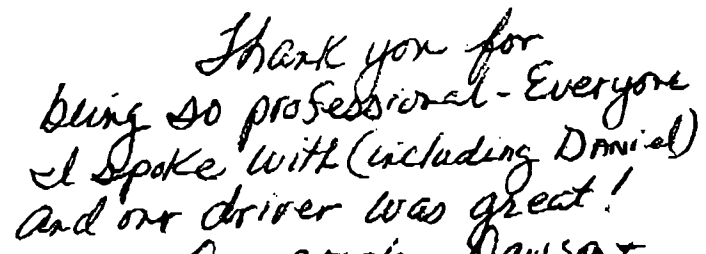 Thank you for
being so professional - Everyone
I spoke with (including Daniel)
and our driver was great!